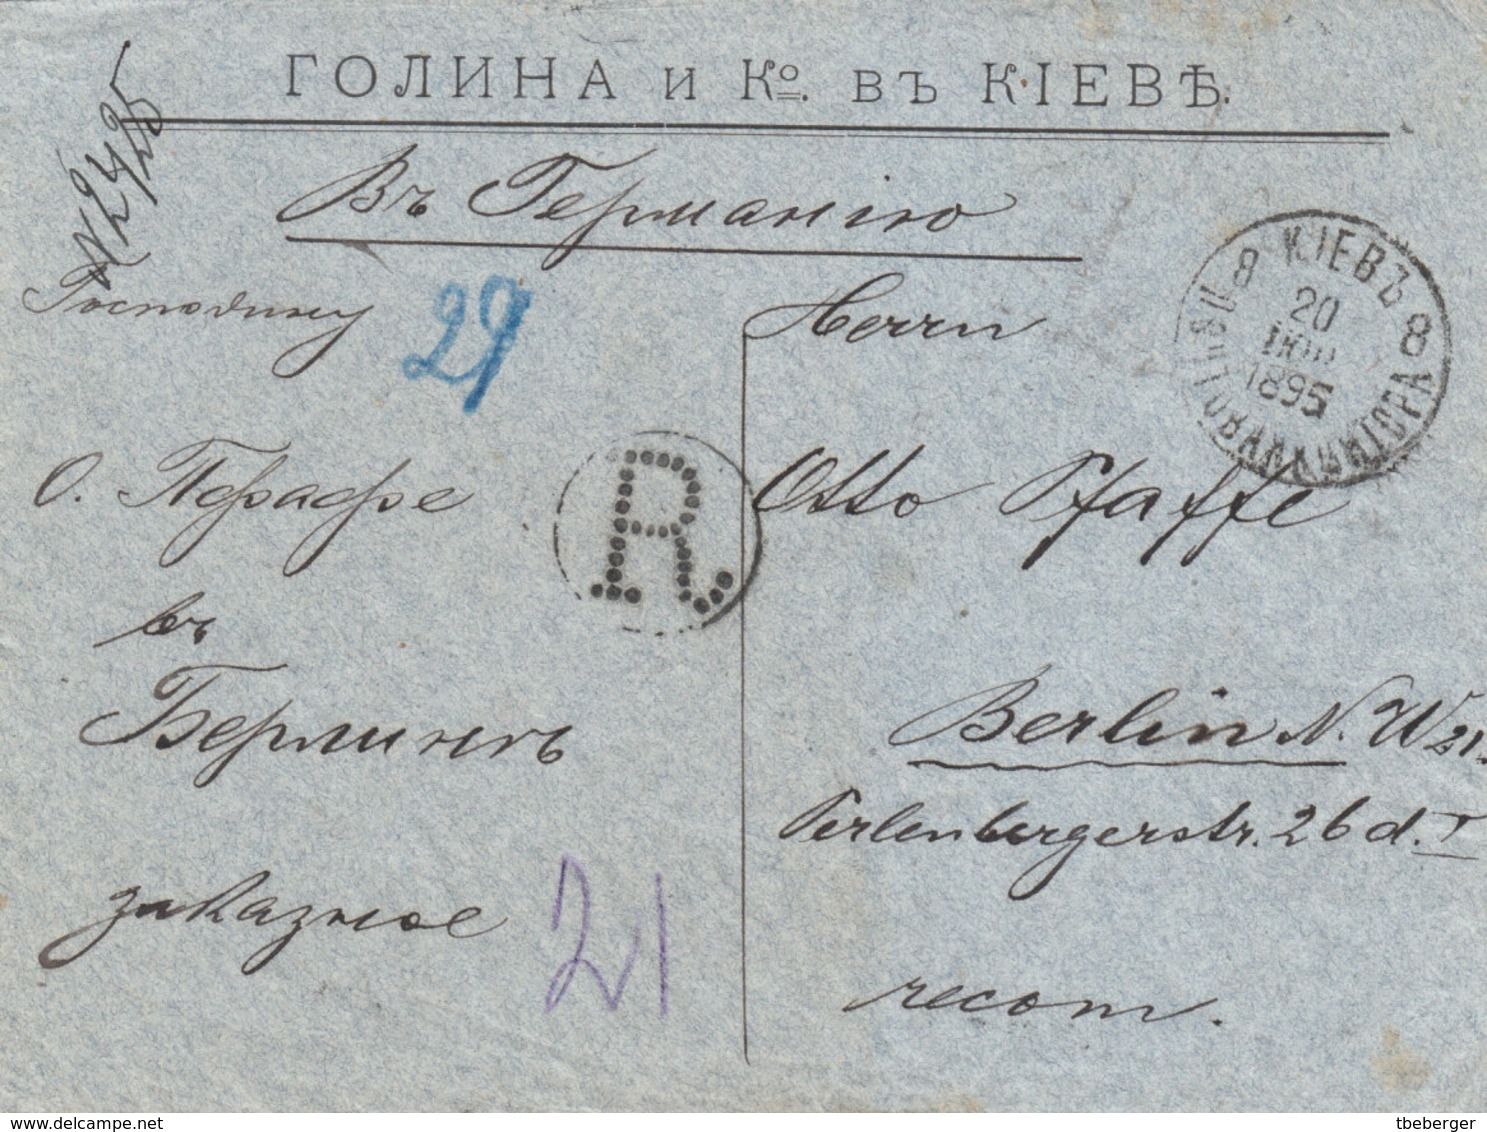 ГОЛИНА и Ко. ВЪ КІЕВѢ.
N 2425
Въ Германію
Господину
29
О. Пфаффе
въ
Берлинѣ
заказное
21
R
8 КІЕВЪ 8
20
1895
Herrn
Otto Pfaffe
Berlin N.W 21.
Perlenbergerstr. 26 d. I
recom.
delcampe.net
tbeberger